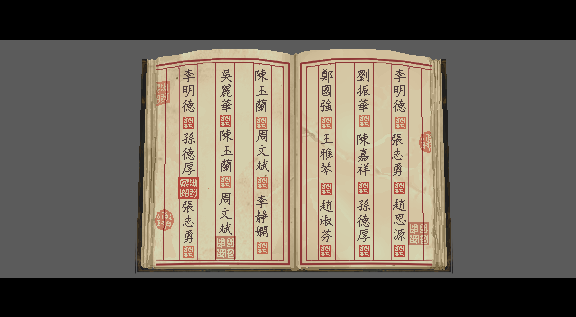 李明德 張志勇 趙思源
劉振華 陳嘉祥 孫德厚
鄭國強 王雅琴 趙淑芬
陳玉蘭 周文斌 李靜嫻
吳麗華 陳玉蘭 周文斌
李明德 孫德厚 張志勇